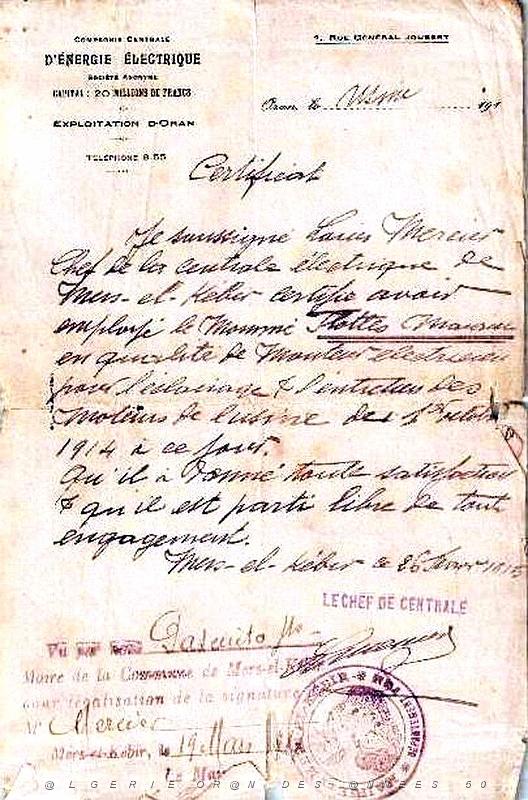 COMPAGNIE CENTRALE
D'ÉNERGIE ÉLECTRIQUE
SOCIÉTÉ ANONYME
CAPITAL : 20 MILLIONS DE FRANCS
EXPLOITATION D'ORAN
TÉLÉPHONE 8.55
4, RUE GÉNÉRAL JOUBERT
Oran, le Usine 191
Certificat
Je soussigné Louis Mercier
Chef de la centrale électrique de
Mers-el-Kébir certifie avoir
employé le Nommé Flottes
en qualité de Monteur electricien
pour l'éclairage & l'entretien des
Moteurs de l'usine du 1er octobre
1914 à ce jour.
Qu'il à donné toute satisfaction
& qu'il est parti libre de tout
engagement.
Mers-el-Kébir ce 26
LE CHEF DE CENTRALE
Vu par nous
Maire de la Commune de Mers-el-Kébir
pour légalisation de la signature
Mr Mercier
Mers-el-Kébir, le 19 Mai
Le Maire
@LGERIE OR@N DES @NNEES 50